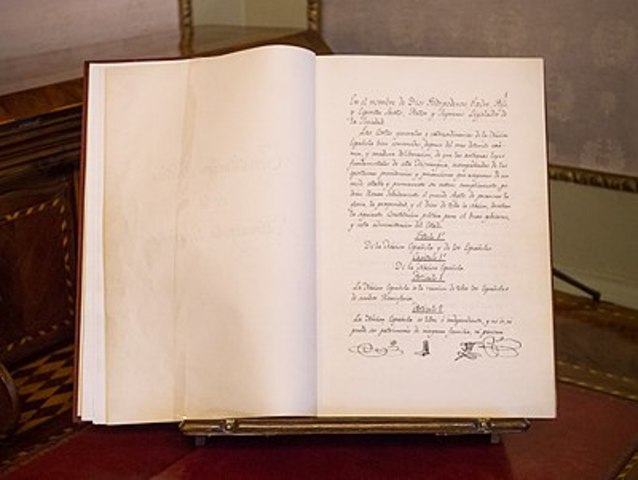 En el nombre de Dios Todopoderoso Padre, Hijo,
y Espiritu Santo, Autor y Supremo Legislador de
la Sociedad.
Las Cortes generales y extraordinarias de la Nacion
Española, bien convencidas, despues del mas detenido exá-
men, y madura deliberacion, de que las antiguas leyes
fundamentales de esta Monarquia, acompañadas de las
oportunas providencias y precauciones que aseguren de un
modo estable y permanente su entero cumplimiento, po-
drán llenar debidamente el grande objeto de promover la
gloria, la prosperidad, y el bien de toda la Nacion, decretan
la siguiente Constitucion politica para el buen gobierno,
y recta administracion del Estado.
Titulo 1º
De la Nacion Española y de los Españoles.
Capitulo 1º
De la Nacion Española.
Articulo 1
La Nacion Española es la reunion de todos los Españoles
de ambos Hemisferios.
Articulo 2
La Nacion Española es libre é independiente, y no es, ni
puede ser patrimonio de ninguna familia, ni persona